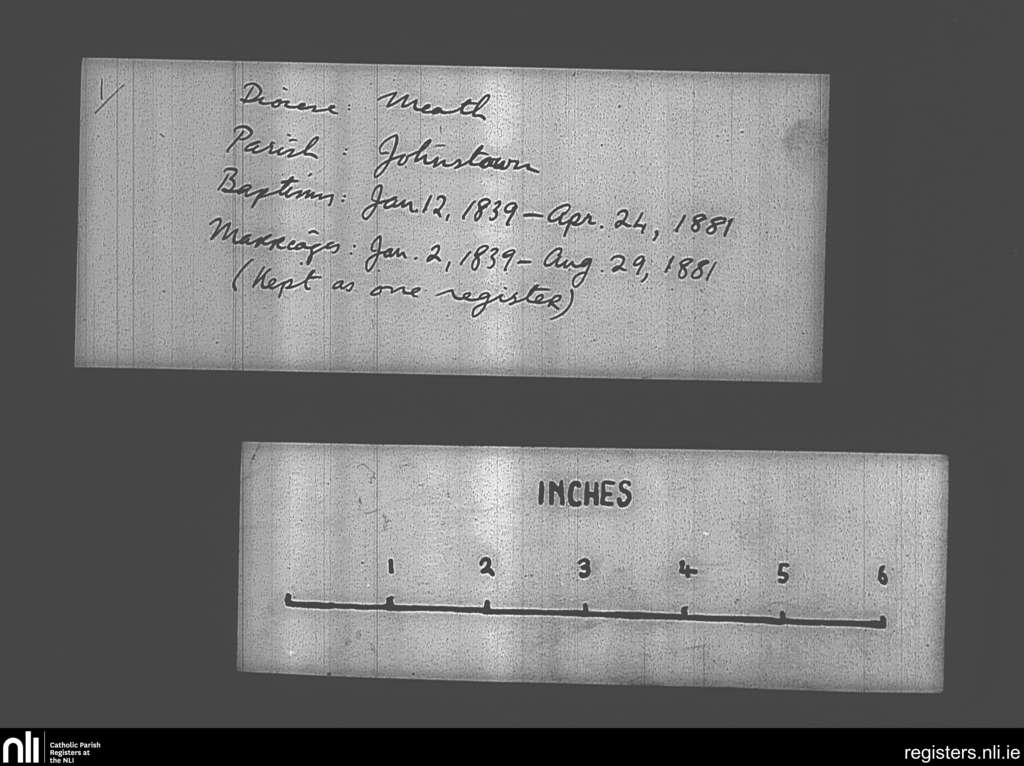 1/
Diocese: Meath
Parish: Johnstown
Baptisms: Jan 12, 1839 – Apr. 24, 1881
Marriages: Jan. 2, 1839 – Aug. 29, 1881
(Kept as one register)
INCHES
1 2 3 4 5 6
nli
Catholic Parish
Registers at
the NLI
registers.nli.ie